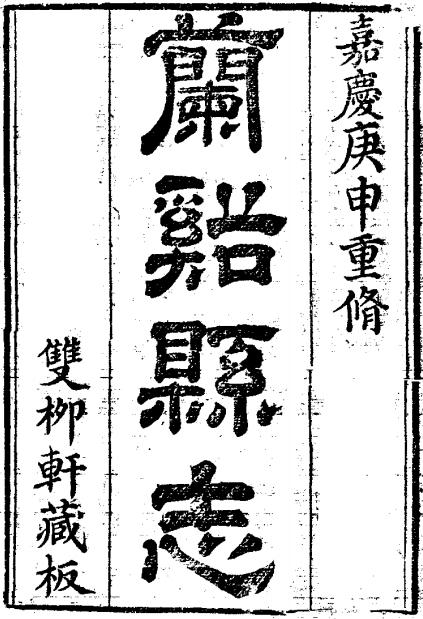 嘉慶庚申重脩
蘭谿縣志
雙柳軒藏板